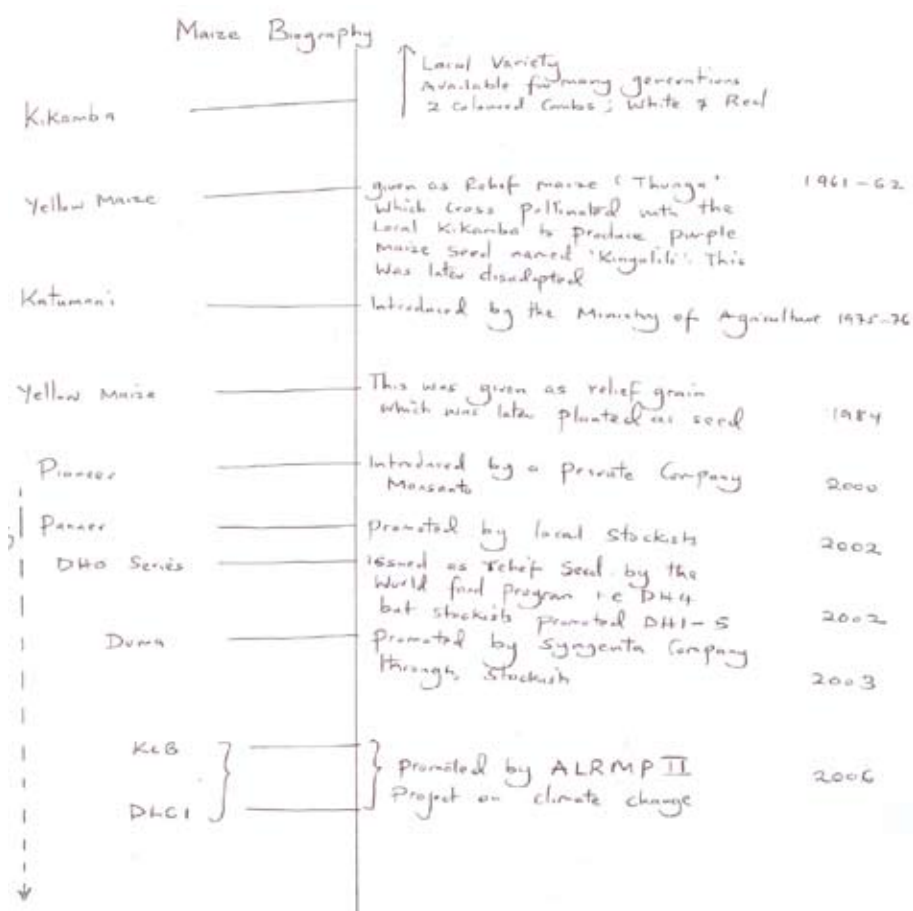 Maize Biography
Local Variety
Available for many generations
2 Coloured Combs; White & Red
Kikamba
Yellow Maize
given as Relief maize 'Thunga'
1961-62
which cross pollinated with the
Local Kikamba to produce purple
maize seed named 'Kingulili'. This
was later disadopted
Katumani
Introduced by the Ministry of Agriculture 1975-76
Yellow Maize
This was given as relief grain
which was later planted as seed
1984
Pioneer
Introduced by a Private Company
Monsanto
2000
Panner
promoted by local Stockists
2002
DHO Series
issued as relief seed by the
World food program i.e DH4
but stockists promoted DH1-5
2002
Duma
promoted by Syngenta Company
through Stockish
2003
KCB
DLC1
promoted by ALRMP II
Project on climate change
2006